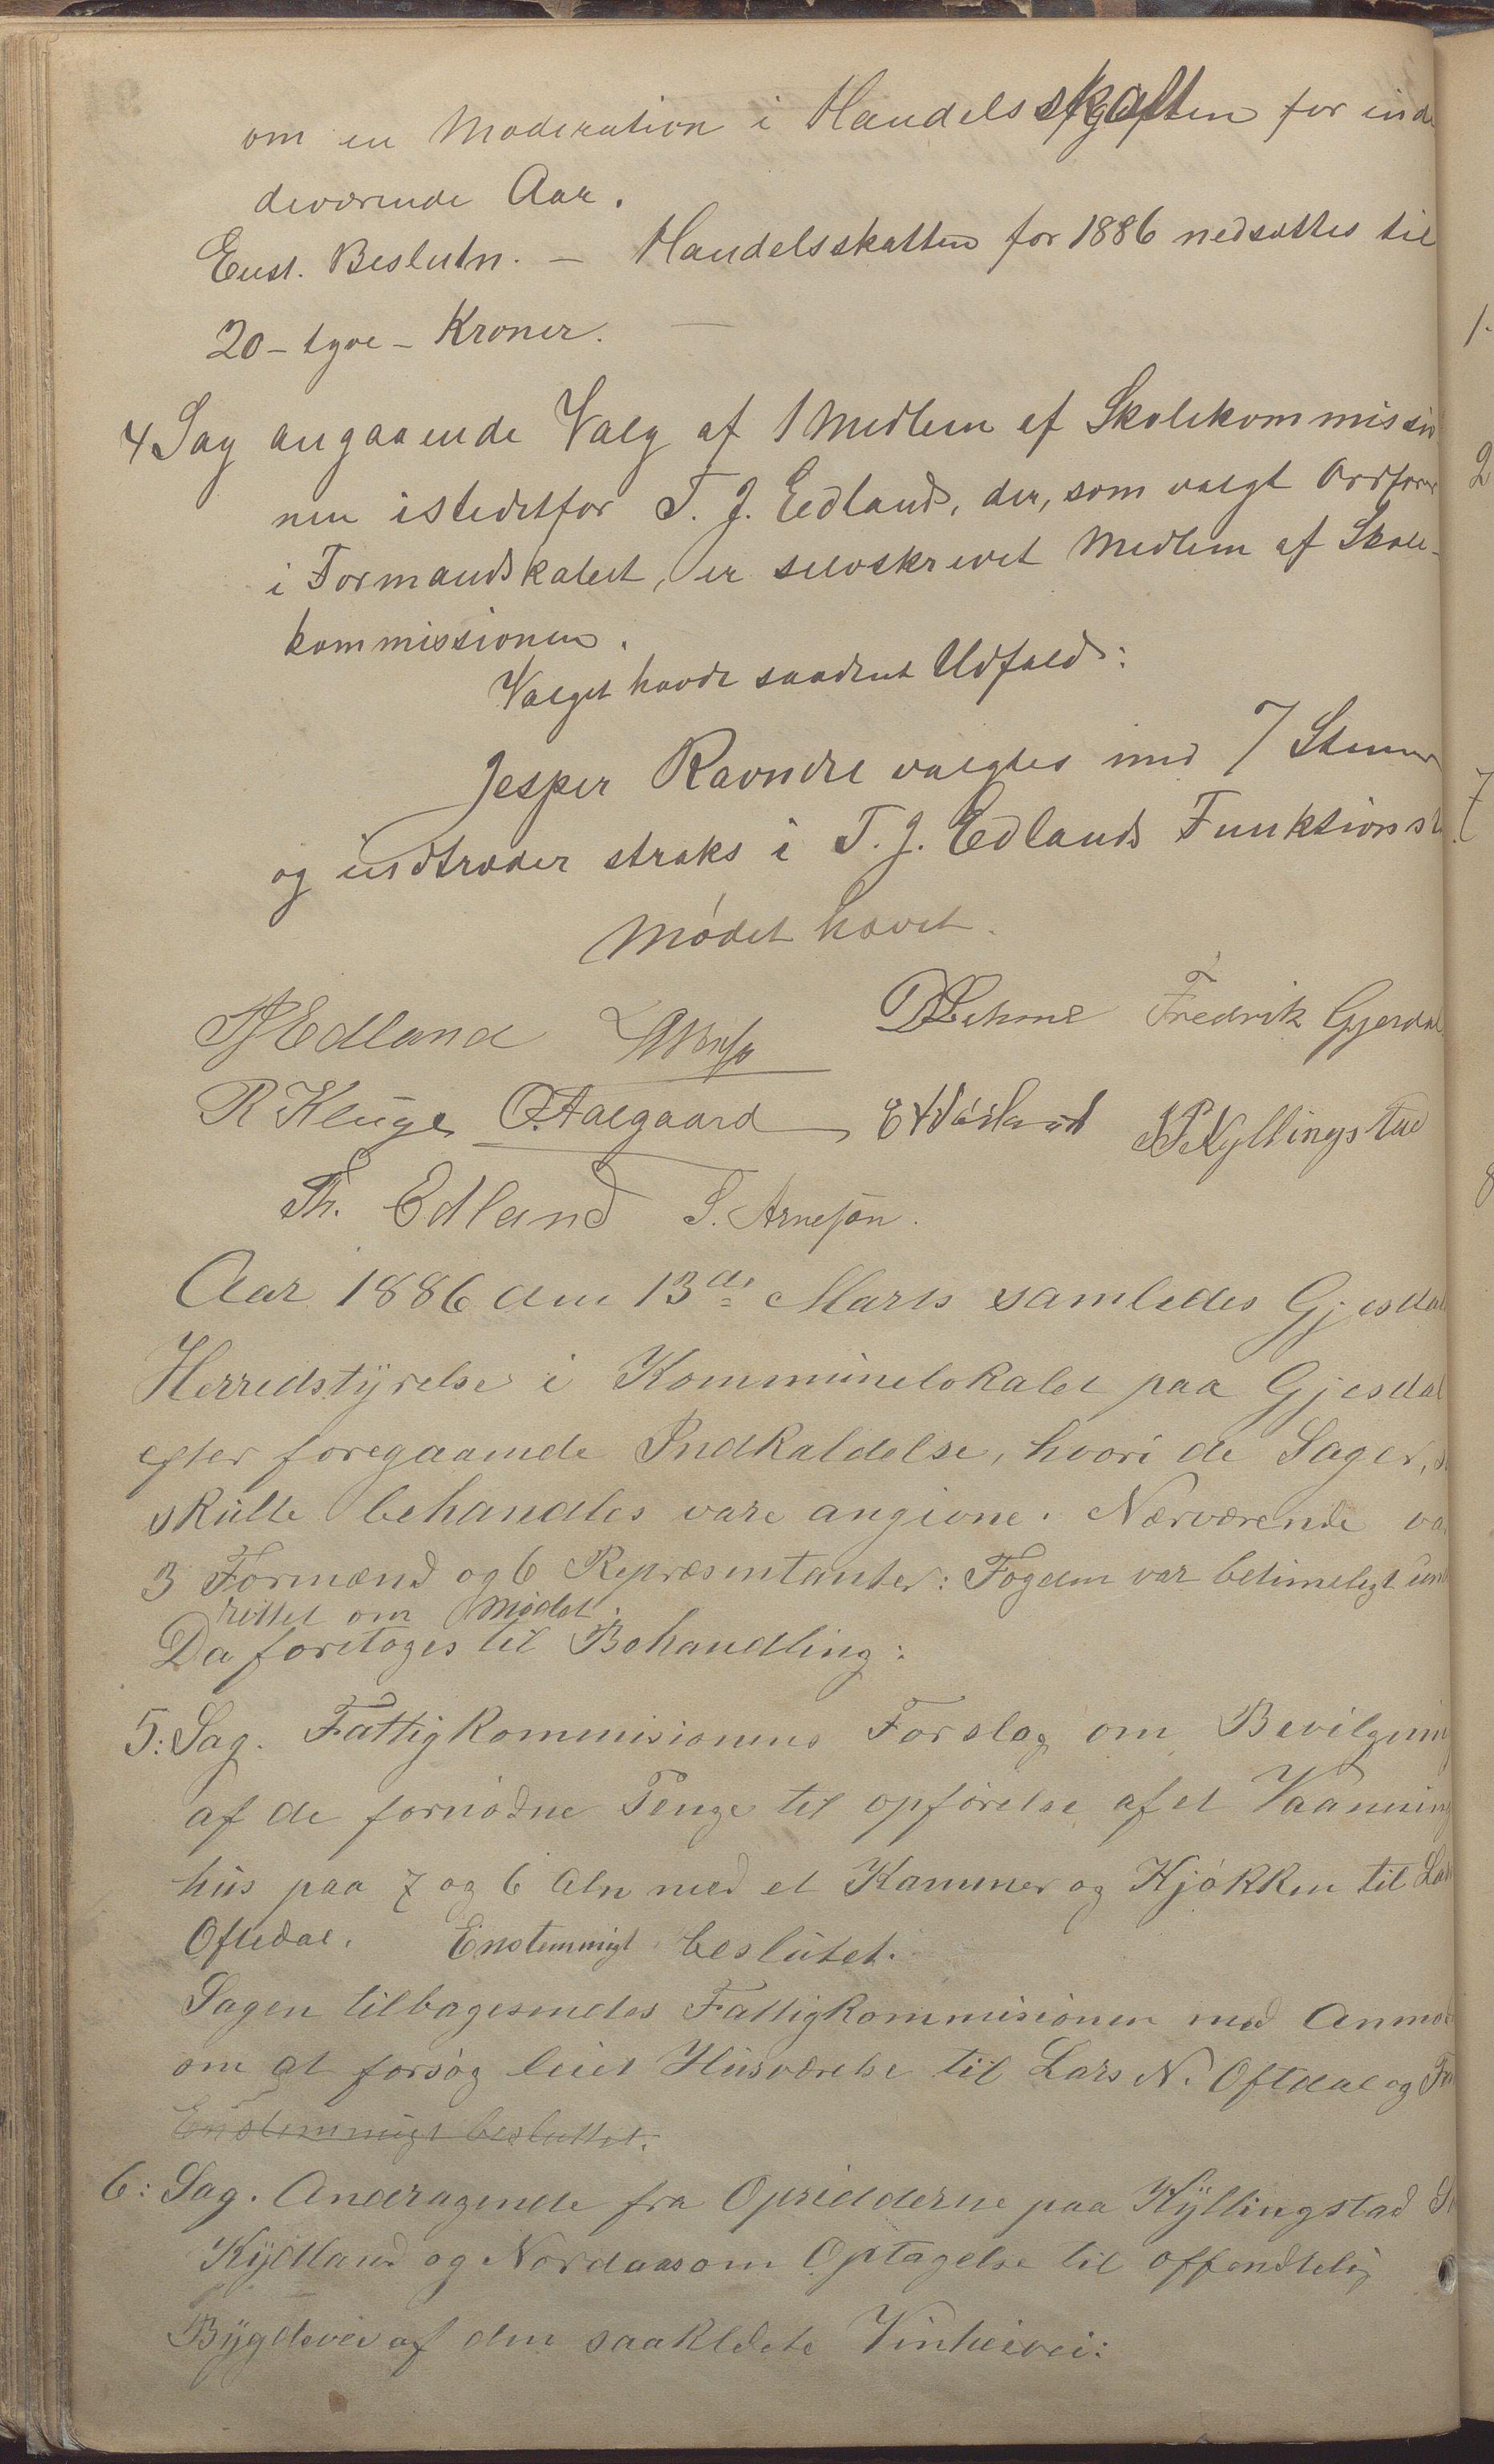 om en Moderation i Handelsskatten for inde
deværende Aar.
Enst. Beslutn. — Handelsskatten for 1886 nedsættes til
20 - tyve - Kroner. —
4 Sag angaaende Valg af 1 Medlem af Skolekommissio
nen istedetfor T. J. Edland, der, som valgt Ordfører
i Formandskabet, er selvskrevet Medlem af Skole-
kommissionen.
Valget havde saadant Udfald:
Jesper Ravndal valgtes med 7 Stemmer
og indtræder straks i T. J. Edlands Funktionst
Mødet hævet.
TJEdland Fredrik Gjesdal
R Kluge O. Aalgaard Kyllingstad
Th. Edland T. Arnesen.
Aar 1886 den 13de Marts samledes Gjesdal
Herredstyrelse i Kommunelokalet paa Gjesdal
efter foregaaende Indkaldelse, hvori de Sager, s
skulle behandles vare angivne. Nærværende va
3 Formænd og 6 Repræsentanter: Fogden var betimeligt und
rettet om Mødet.
Da foretoges til Behandling:
5: Sag. Fattigkommisionens Forslag om Bevilgning
af de fornødne Penge til opførelse af et Vaaning
hus paa 7 og 6 Aln med et Kammer og Kjøkken til Lars
Oftedal. Enstemmigt beslutet.
Sagen tilbagesendes Fattigkommisionen med Anmod
om at forsøg leiet Husværelse til Lars N. Oftedal og Fa
Enstemmigt besluttet.
6: Sag. Andragende fra Opsidderne paa Kyllingstad
Kydland og Nordaas om Optagelse til offendtelig
Bygdevei af den saakldete Vintervei: